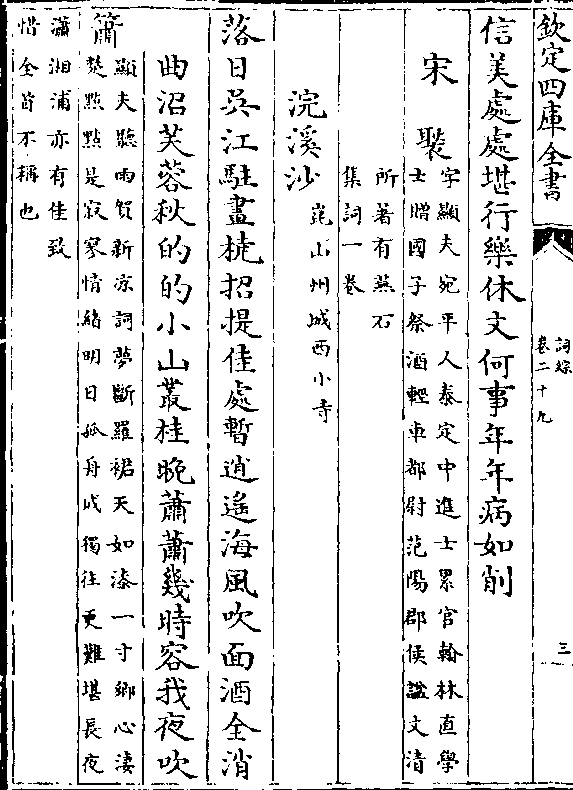 欽定四庫全書
詞綜
卷二十九
三
信美處處堪行樂休文何事年年病如削
宋褧字顯夫宛平人泰定中進士累官翰林直學
士贈國子祭酒輕車都尉范陽郡侯諡文清
所著有燕石
集詞一卷
浣溪沙崑山州城西小寺
落日吳江駐畫橈招提佳處暫逍遙海風吹面酒全消
曲沼芙蓉秋的的小山叢桂晚蕭蕭幾時容我夜吹
簫顯夫聽雨賀新凉詞夢斷羅裙天如漆一寸鄉心淒
楚點點是寂寥情緒明日孤舟成獨往更難堪長夜
瀟湘浦亦有佳致
惜全首不稱也